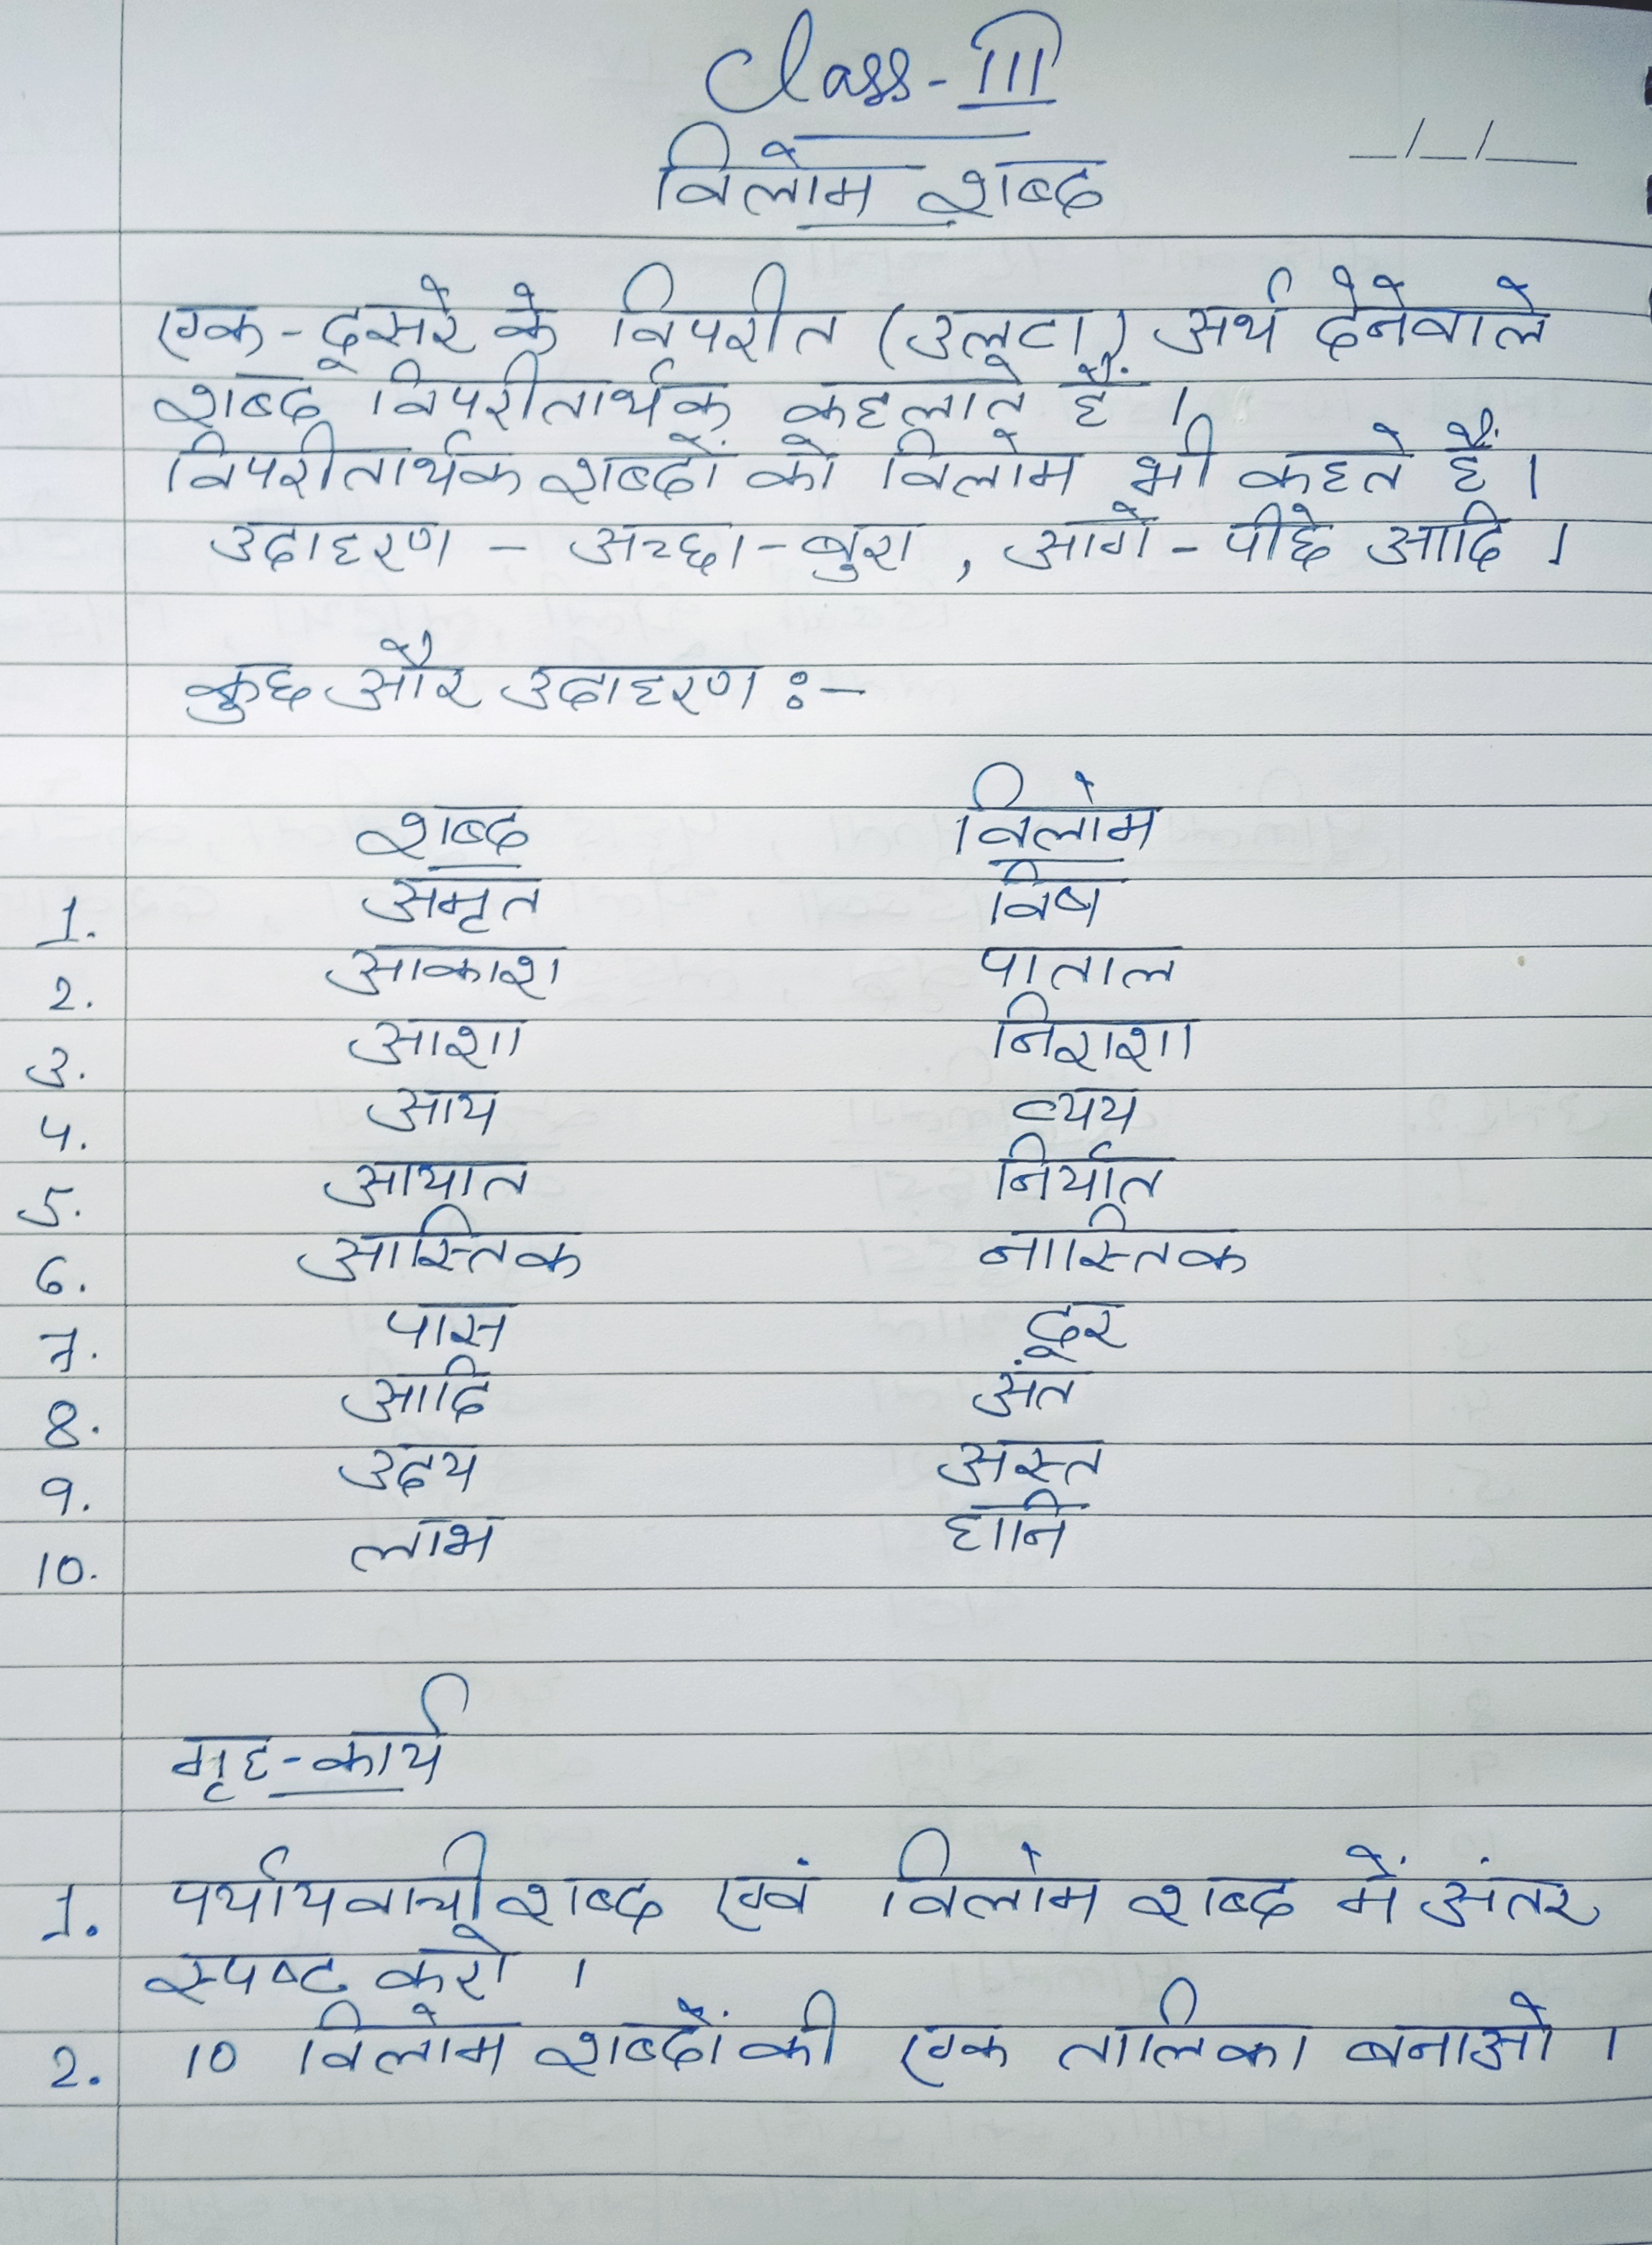 Class-III
विलोम शब्द
एक-दूसरे के विपरीत (उल्टा) अर्थ देनेवाले
शब्द विपरीतार्थक कहलाते हैं ।
विपरीतार्थक शब्दों को विलोम भी कहते हैं ।
उदाहरण - अच्छा-बुरा , आगे-पीछे आदि ।
कुछ और उदाहरण :-
शब्द विलोम
1. अमृत विष
2. आकाश पाताल
3. आशा निराशा
4. आय व्यय
5. आयात निर्यात
6. आस्तिक नास्तिक
7. पास दूर
8. आदि अंत
9. उदय अस्त
10. लाभ हानि
गृह-कार्य
1. पर्यायवाची शब्द एवं विलोम शब्द में अंतर
स्पष्ट करो ।
2. 10 विलोम शब्दों की एक तालिका बनाओ ।